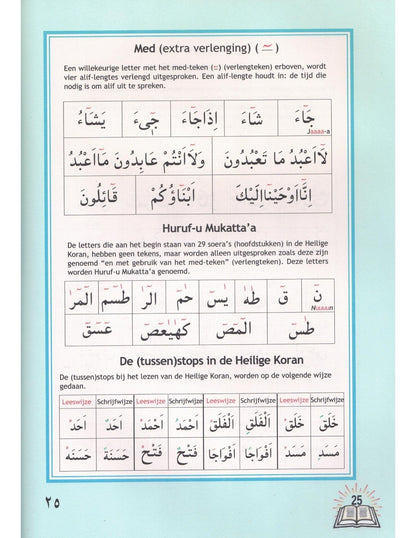 Med (extra verlenging) ( ــٓ )
Een willekeurige letter met het med-teken (ــٓ) (verlengteken) erboven, wordt
vier alif-lengtes verlengd uitgesproken. Een alif-lengte houdt in: de tijd die
nodig is om alif uit te spreken.
جَٓاءَ شَٓاءَ اِذَاجَٓاءَ جٖٓىءَ يَشَٓاءُ
Jaaaa-a
لَٓااَعْبُدُ مَا تَعْبُدُونَ وَلَٓااَنْتُمْ عَابِدُونَ مَٓااَعْبُدُ
اِنَّٓااَوْحَيْنَٓااِلَيْكَ اَبْنَٓاؤُكُمْ قَٓائِلُونَ
Huruf-u Mukatta'a
De letters die aan het begin staan van 29 soera's (hoofdstukken) in de Heilige
Koran, hebben geen tekens, maar worden alleen uitgesproken zoals deze zijn
genoemd "en met gebruik van het med-teken" (verlengteken). Deze letters
worden Huruf-u Mukatta'a genoemd.
نٓ قٓ طٰهٰ يٰسٓ حٰمٓ الٓرٰ طٰسٓمٓ الٓمٓرٰ
Nuuuun
طٰسٓ الٓمٓصٓ كٓهٰيٰعٓصٓ عٓسٓقٓ
De (tussen)stops in de Heilige Koran
De (tussen)stops bij het lezen van de Heilige Koran, worden op de volgende wijze
gedaan.
Leeswijze Schrijfwijze Leeswijze Schrijfwijze Leeswijze Schrijfwijze Leeswijze Schrijfwijze
خَلَقَ خَلَقْ اَلْفَلَقِ اَلْفَلَقْ اَحَدٌ اَحَدْ
مَسَدٍ مَسَدْ اَفْوَاجًا اَفْوَاجَا فَتْحٌ فَتْحْ حَسَنَةً حَسَنَهْ
٢٥
25